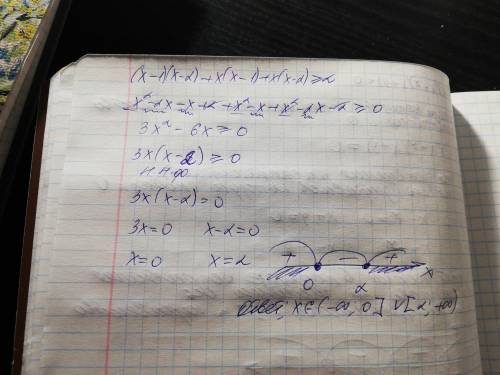 (x-1)(x-2)+x(x-1)+x(x-2)≥2
x²-2x-x+2+x²-x+x²-2x-2≥0
3x²-6x≥0
3x(x-2)≥0
3x(x-2)=0
3x=0 x-2=0
x=0 x=2
+ - +
0 2 x
Ответ: x∈(-∞; 0]∪[2; +∞)